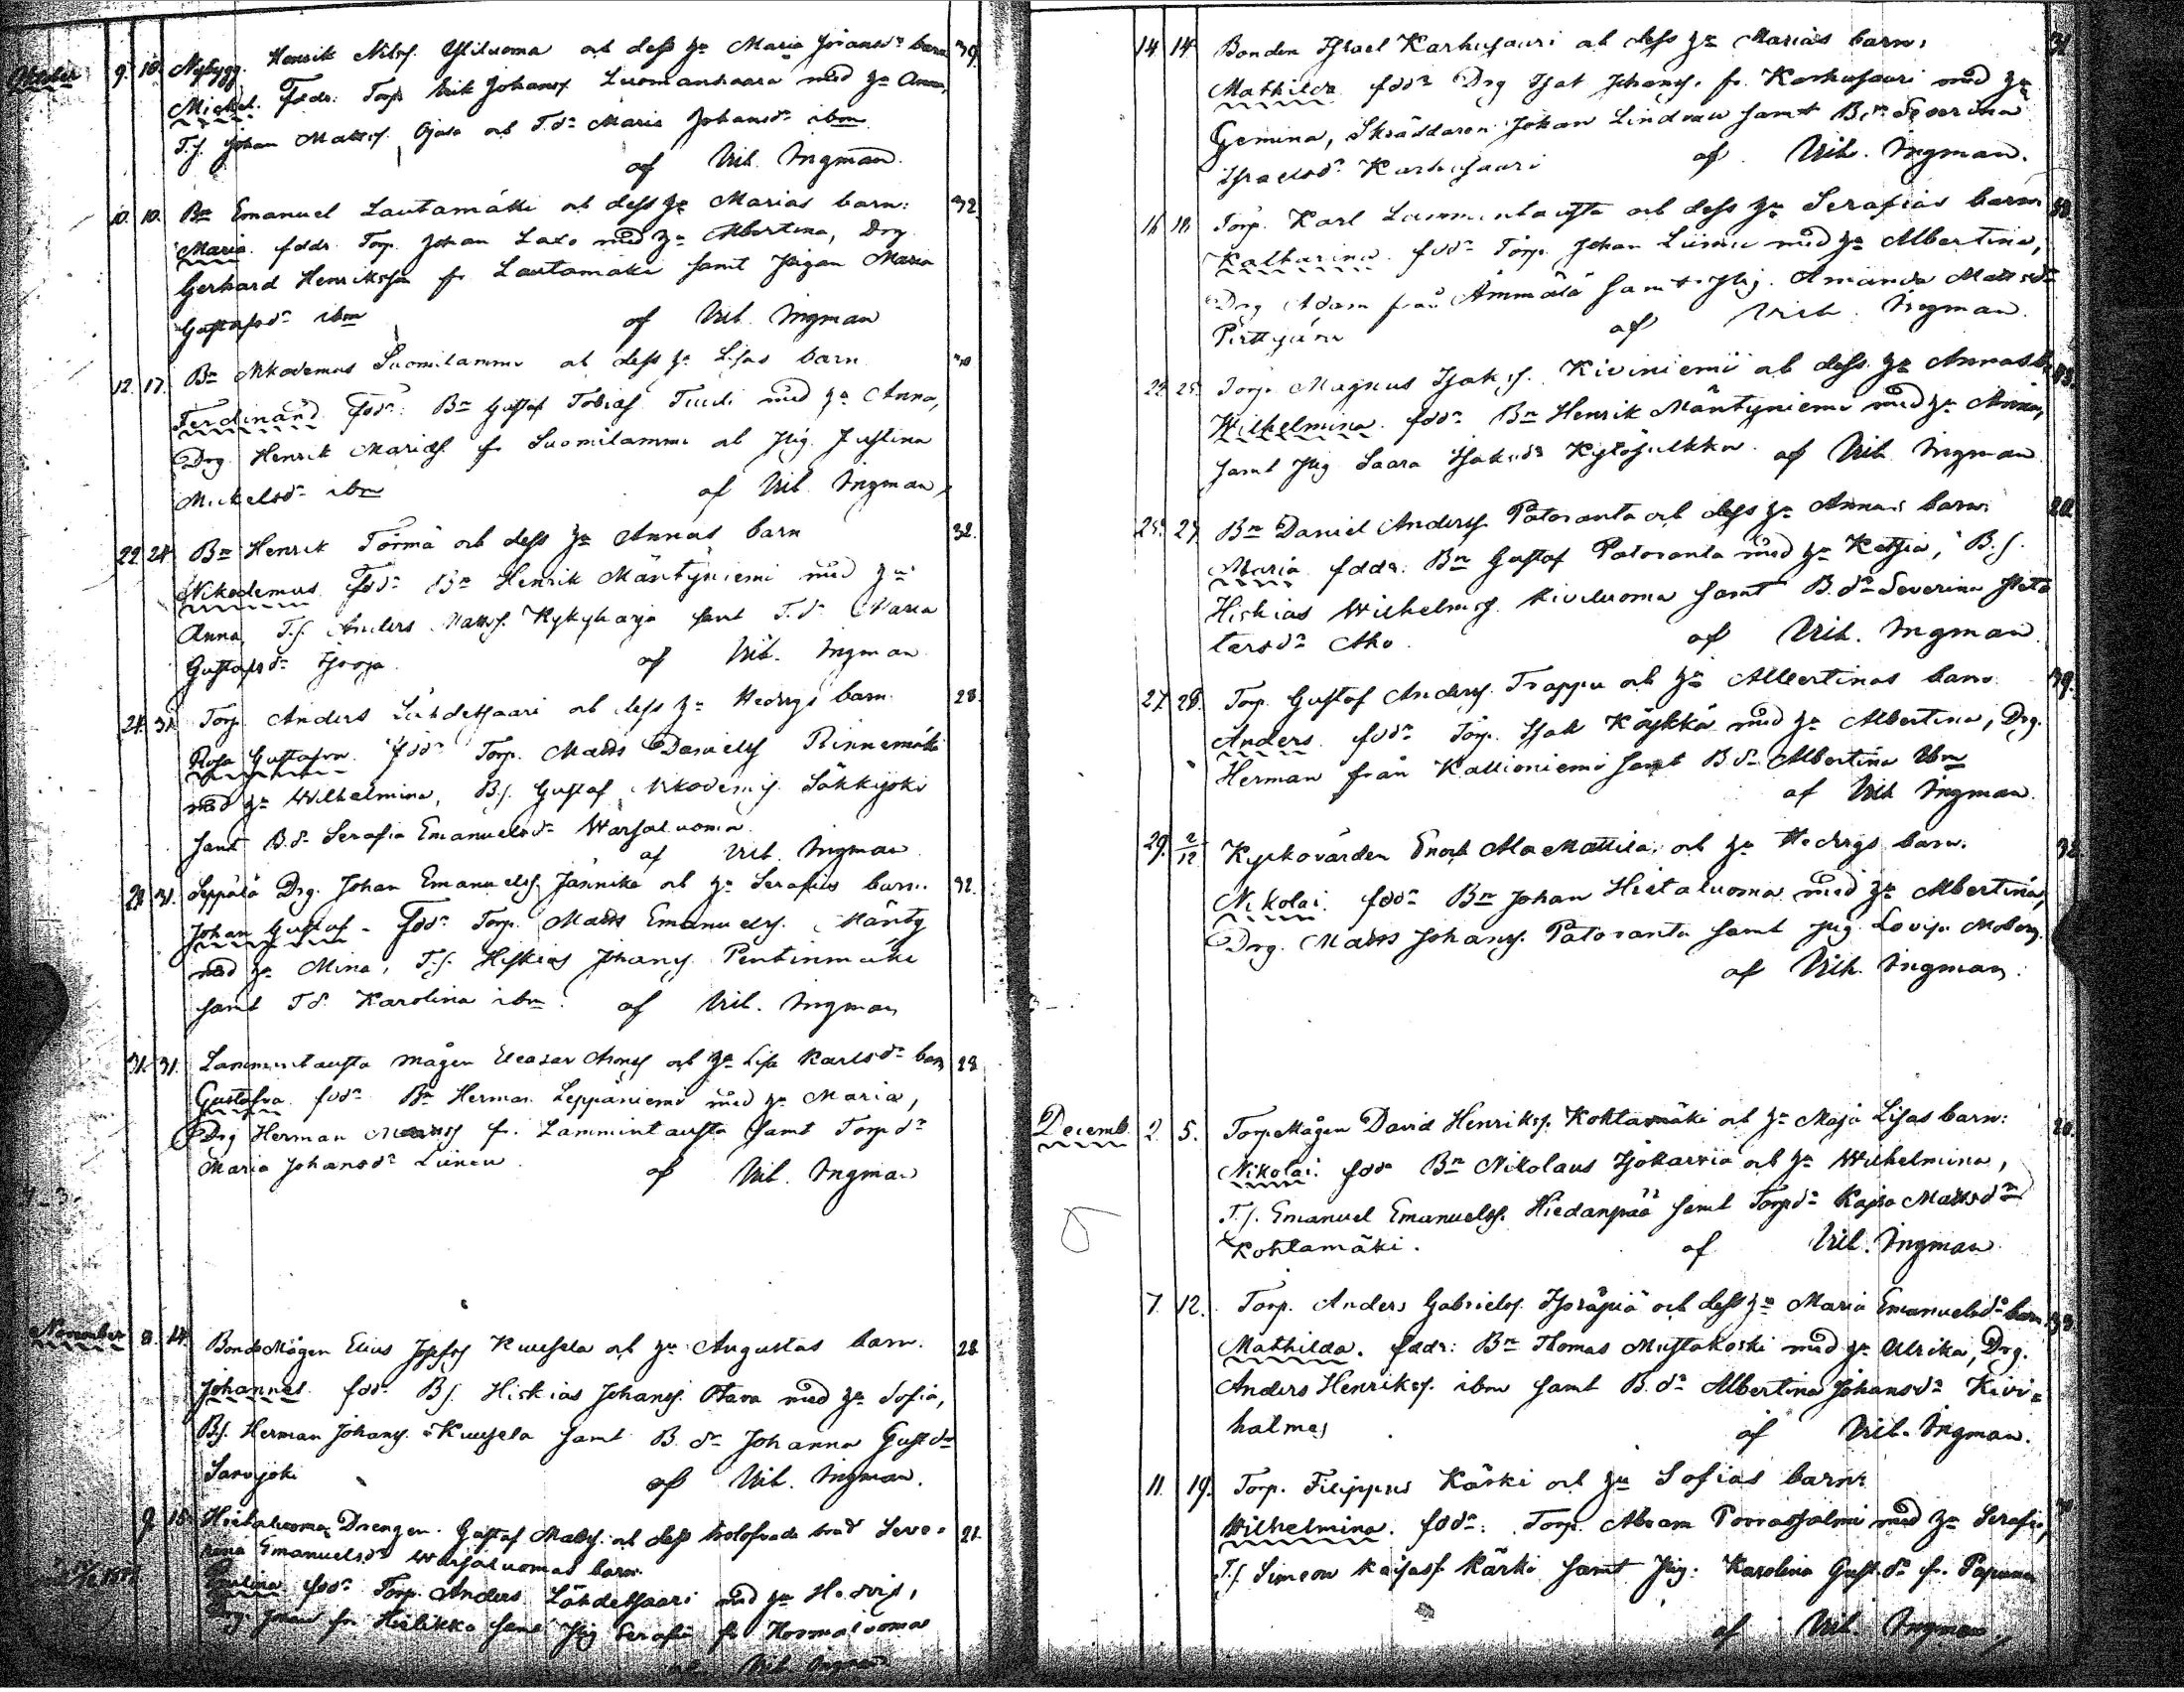 October 9. 10. Nybygg. Henrik Nilss. Yliluoma och dess h:u Maria Johansd:r barn 39.
Mickel. Fddr: Torp. Erik Johanss. Luomanhaara med h:u Anna,
T.S. Johan Matss. Ojala och T.d:r Maria Johansd:r ibm
af Vik. Ingman.
10. 10. Bn Emanuel Lautamäki och dess h:u Marias barn: 32.
Maria. fddr. Torp. Johan Laxo med h:u Albertina, Drg
Gerhard Henriksson fr. Lautamäki samt Pigan Maria
Gustafsd:r ibm af Vik. Ingman
12. 17. Bn Nikodemus Suomilammi och dess h:u Lisas barn
Ferdinand. Fdd:r: Bn Gustaf Tobias med h:u Anna,
Drg Henrik fr Suomilammi och Pig. Justina
Mickelsd:r ibm af Vik. Ingman
22. 24. Bn Henrik Törmä och dess h:u Annas barn 32.
Nikodemus. Fdd:r Bn Henrik Mäntyniemi med h:u
Anna, T.S. Anders Matss. samt T.d:r Maria
Gustafsd:r af Vik. Ingman
24. 31. Torp. Anders Lähdetsaari och dess h:u Hedvigs barn. 28.
Rosa Gustafva. fdd:r Torp. Matts Daniels Rinnemäki
med h:u Wilhelmina, B.S. Gustaf Nikodems. Säkkijoki
samt B.d:r Serafia Emanuelsd:r Warsaluoma.
af Vik. Ingman
29. 31. Seppälä Drg. Johan Emanuelss. Jännikä och h:u Serafias barn. 32.
Johan Gustaf. Fdd:r Torp. Matts Emanuelss. Mänty
med h:u Mina, T.S. Hiskias Johanss. Pentinmäki
samt T.d. Karolina ibm. af Vik. Ingman
31. 31. Lammintausta mågen Eleasar och h:u Lisa Karlsd:r barn 28.
Gustafva. fdd:r Bn Herman Leppäniemi med h:u Maria,
Drg Herman fr. Lammintausta samt Torp.d:r
Maria Johansd:r Liinu af Vik. Ingman
November 8. 14. BondeMågen Elias Josefss Kuusela och h:u Augustas barn. 28.
Johannes. fdd:r B.S. Hiskias Johanss. Otava med h:u Sofia,
B.S. Herman Johanss. Kuusela samt B.d:r Johanna Gust.d:r
Sarvijoki af Vik. Ingman.
9. 15. Hietaluoma Drengen Gustaf Matss. och dess trolofvade brud Seve= 21.
rina Emanuelsd:r Warsaluomas barn.
Paulina fdd:r Torp. Anders Lähdetsaari med h:u Hedvig,
Drg Johan fr. samt Pig Serafia fr
af Vik. Ingman
14. 14. Bonden Israel Karhusaari och dess h:u Marias barn: 31.
Mathilda. fdd:r Drg Isak Johans. fr. Karhusaari med h:u
Gemina, Skräddaren Johan Lindman samt B.d:r Severina
Israelsd:r Karhusaari af Vik. Ingman.
16. 18. Torp. Karl Lammintausta och dess h:u Serafias barn
Katharina. fdd:r Torp. Johan Liinu med h:u Albertina,
Drg Adam från Ämmälä samt Pig. Amanda Mattsd:r
af Vik. Ingman.
24. 25. Torp. Magnus Isaks. Kiviniemi och dess h:u Annas b. 33.
Wilhelmina. fdd:r Bn Henrik Mäntyniemi med h:u Anna,
samt Pig Saara Isaksd:r Kytöjulkku. af Vik. Ingman
25. 27. Bn Daniel Anderss. Patoranta och dess h:u Annas barn: 20.
Maria. fddr. Bn Gustaf Patoranta med h:u Kaisa, B.S.
Hiskias Wilhelmss. Kiviluoma samt B.d:r Severina
tersd:r Aho. af Vik. Ingman.
27. 28. Torp. Gustaf Anderss. Trappu och h:u Albertinas barn. 39.
Anders. fdd:r Torp. Isak Köykkä med h:u Albertina, Drg.
Herman från Kallioniemi samt B.d:r Albertina ibm
af Vik Ingman.
29. 2/12 Kyrkovärden Enok AlaMattila, och h:u Hedvigs barn. 32.
Nikolai. fdd:r Bn Johan Hietaluoma med h:u Albertina,
Drg. Matts Johanss. Patoranta samt Pig. Lovisa Moberg.
af Vik. Ingman.
Decemb. 2. 5. Torp.Mågen David Henrikss. Kohtamäki och h:u Maja Lisas barn: 20.
Nikolai. fdd:r Bn Nikolaus Isokarvia och h:u Wilhelmina,
T.S. Emanuel Emanuelss. Hiedanpää samt Torp.d:r Kajsa Mattsd:r
Kohtamäki. af Vik. Ingman
7. 12. Torp. Anders Gabrielss. Isoräpiä och dess h:u Maria Emanuelsd:r barn 33.
Mathilda. fddr: Bn Thomas Mustakoski med h:u Ulrika, Drg.
Anders Henrikss. ibm samt B.d:r Albertina Johansd:r Kivi=
halmes af Vik. Ingman.
11. 19. Torp. Filippus Kärki och h:u Sofias barn:
Wilhelmina. fdd:r: Torp. Abram Porrassalmi med h:u Serafia,
T.S. Simeon Kaisass. Kärki samt Pig: Karolina Gust.d:r fr.
af Vik. Ingman